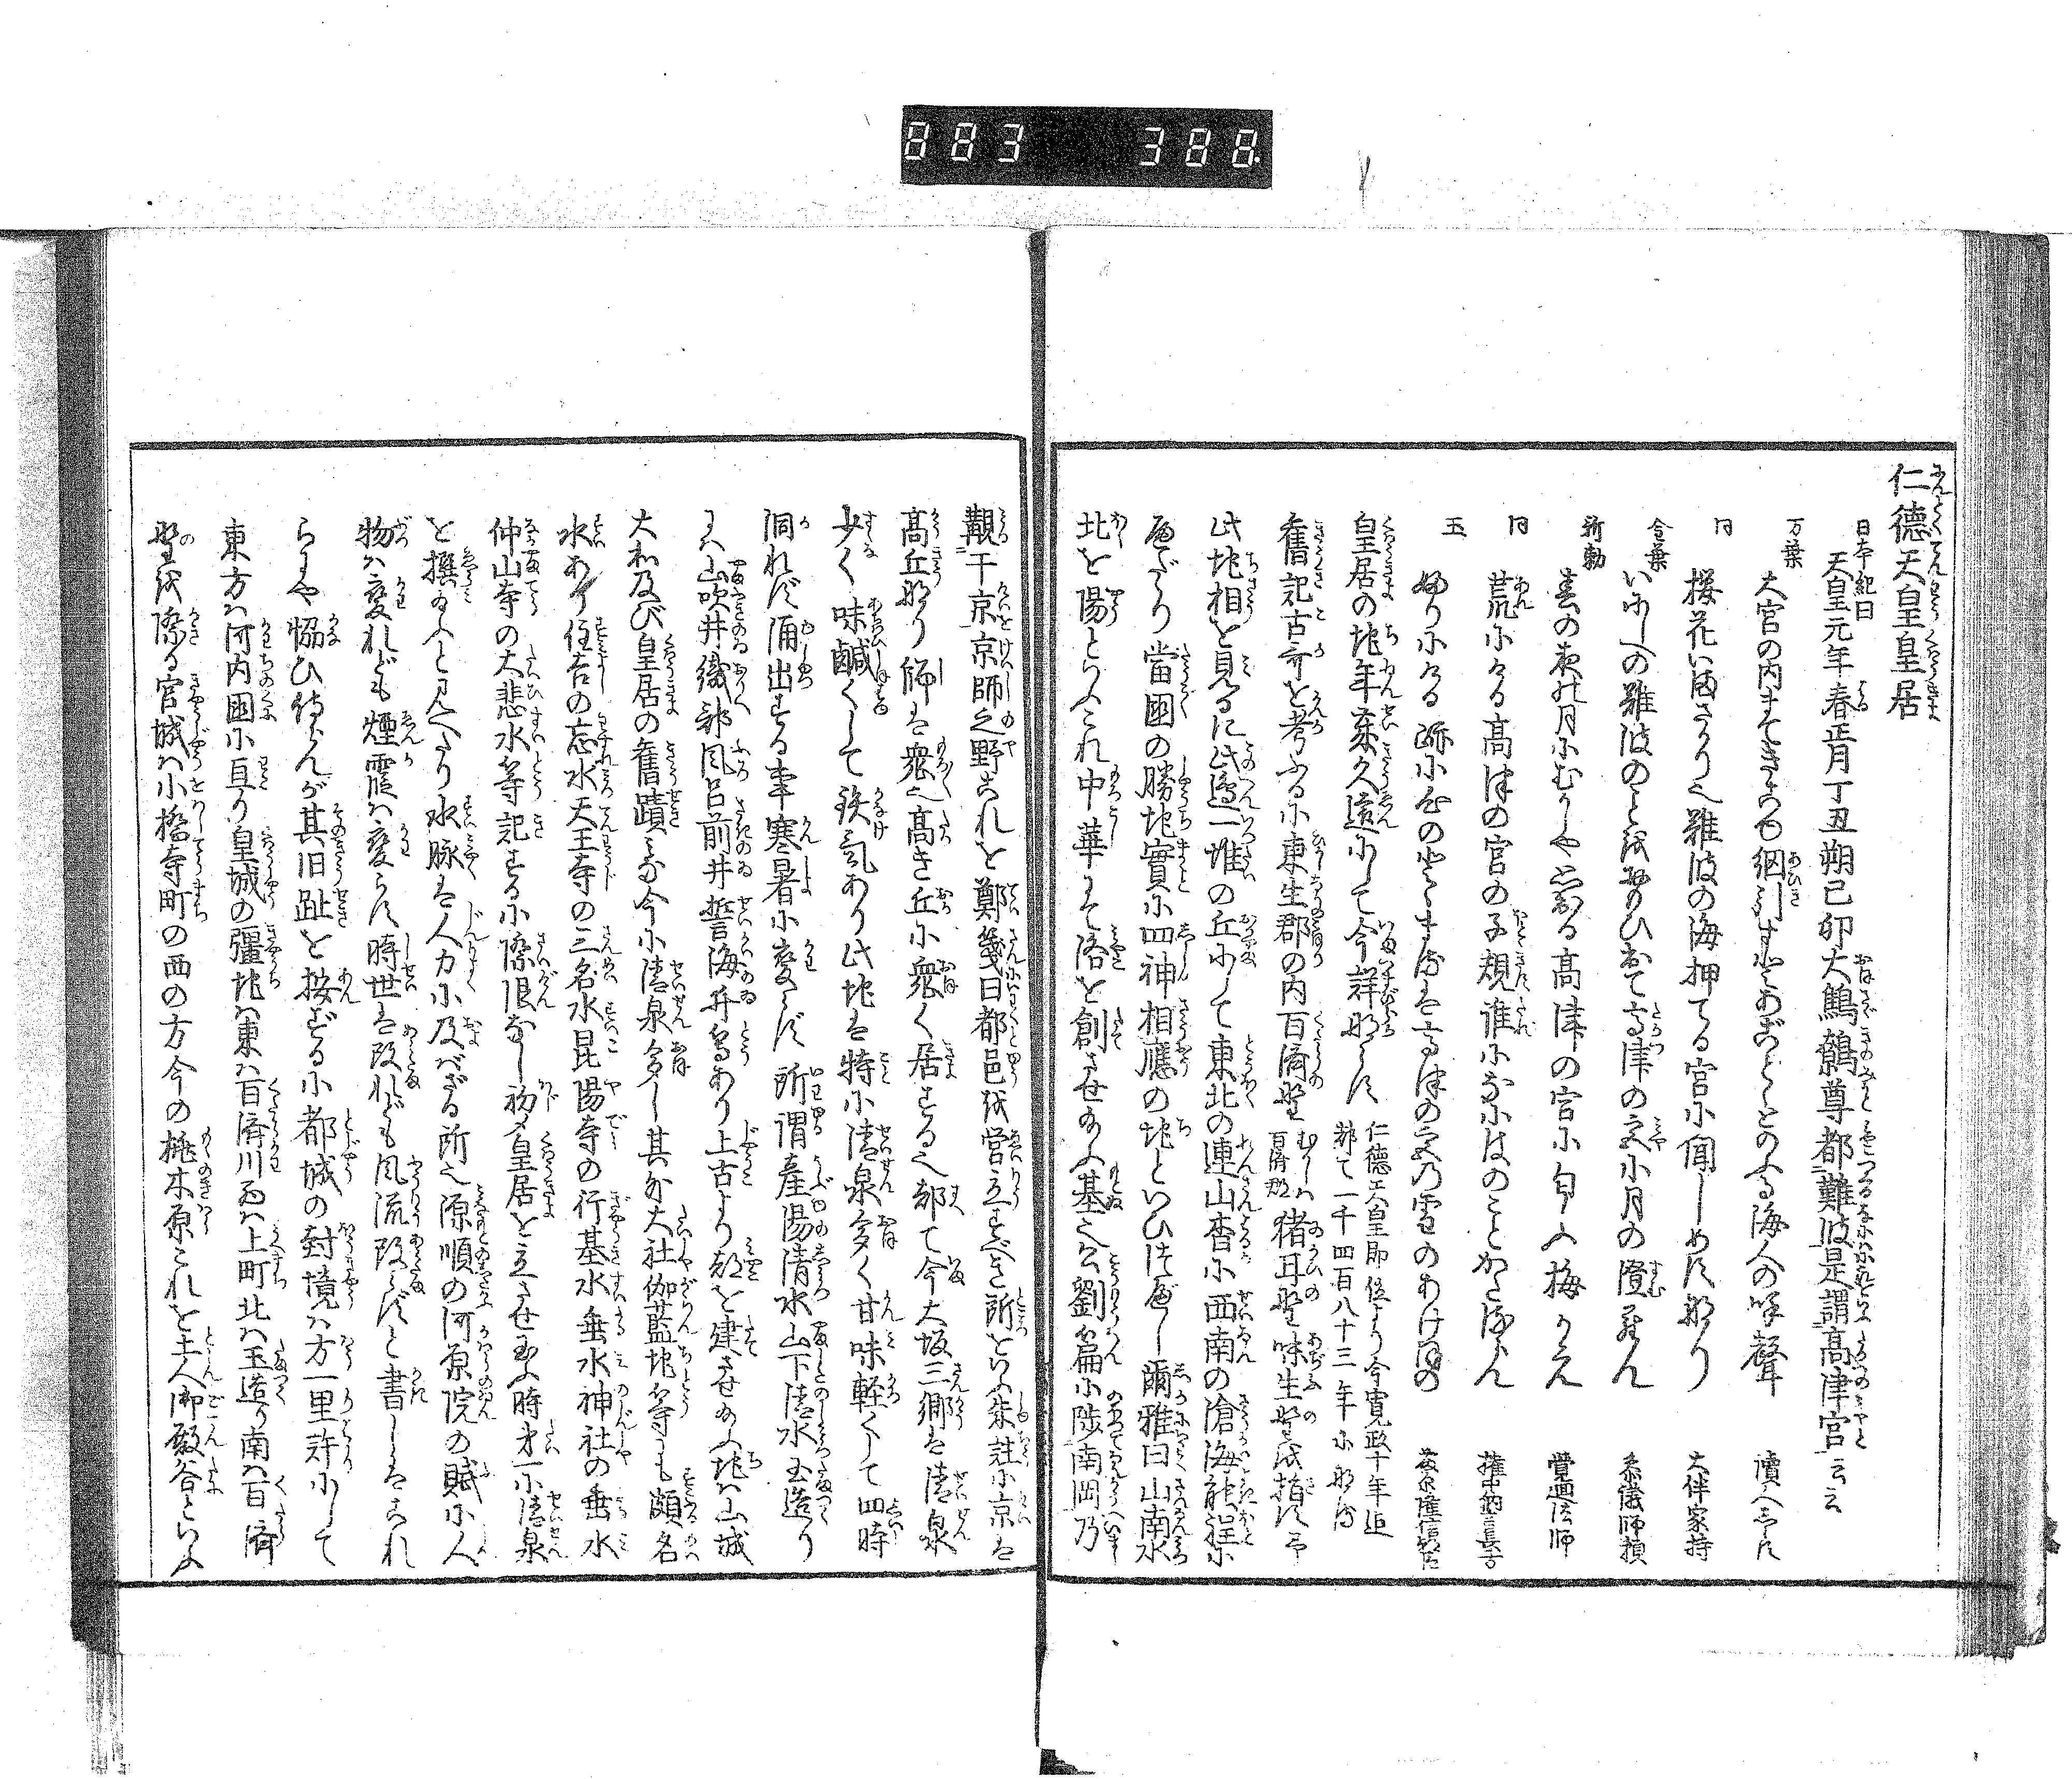 883 388
仁德天皇皇居
日本紀曰
天皇元年春正月丁丑朔己卯大鷦鷯尊都難波是謂高津宮云云
万葉
大宮の内まてきこゆ網引すとあごとゝのふる海人の呼聲 讀人しらす
同
桜花いまさかりなり難波の海押てる宮に聞しめすなり 大伴家持
今葉
いにしへの難波のことを思ひ出て高津の宮に月の澄らん 参議師頼
新勅
春の夜の月にむかしや思ひ出る高津の宮に匂ふ梅かえ 覺延法師
同
荒にける高津の宮の子規誰になにはのことかたるらん 權中納言長方
玉
ふりにける
皇居の地年序久遠にして今詳ならす 仁徳天皇即位より今寛政十年迄都て一千四百八十三年に及ぶ
舊記古哥を考ふるに東生郡の内百濟野 むかしハ百済郡 猪耳野味生野を指す
此地相を見るに此邊一堆の丘にして東北の連山杳に西南の滄海
當國の勝地實に四神相應の地といひつべし爾雅曰山南水
北を陽といふこれ中華にて洛を創させ給ふ基也公劉篇に陟南岡乃
覯于京京師之野これを鄭箋曰都邑を営立すべき所といふ朱註に京は
高丘なり師は衆也高き丘に衆く居する也都て今大坂三郷は清泉
少く味鹹くして鉄氣あり此地は特に清泉多く甘味軽くして四時
洞れず涌出する事寒暑に変らず所謂産陽清水山下清水玉造り
には山吹井織部風呂前井誓海井等あり上古より都を建させ給ふ地は山城
大和及び皇居の舊蹟みな今に清泉多し其外大社伽藍地等も頗名
水あり住吉の忘水天王寺の三名水昆陽寺の行基水垂水神社の垂水
仲山寺の大悲水等記するに際限なし初メ皇居を立させ玉ふ時第一に清泉
を撰給ふと見へたり水脉は人力に及バざる所也源順の河原院の賦に人
物ハ変れども煙霞ハ変らず時世は改れども風流改らずと書しはこれ
らにや恊ひ侍らんが其旧趾を按ずるに都城の封境ハ方一里許にして
東方ハ河内国に亘り皇城の彊地ハ東ハ百濟川西ハ上町北ハ玉造り南ハ百濟
野を際る宮城ハ小橋寺町の西の方今の桃木原これを土人御殿谷といふ